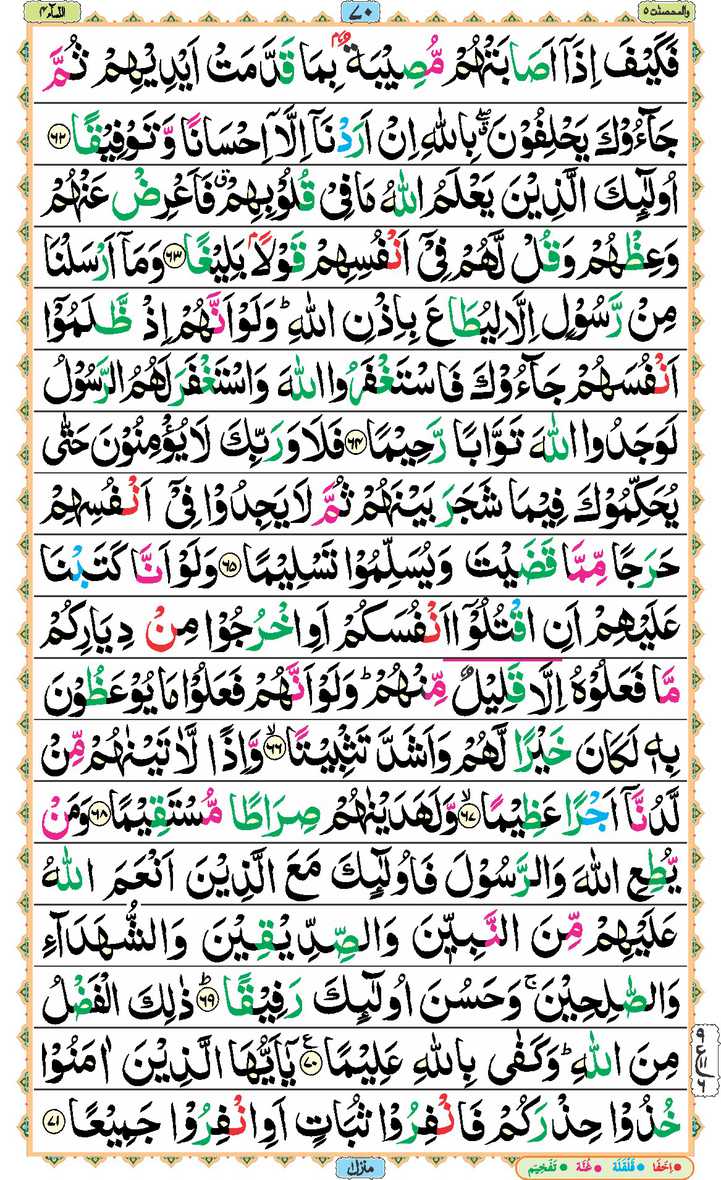 والمحصنت ٥ ٧٠ النساء ٤
فَكَيْفَ اِذَاۤ اَصَابَتْهُمْ مُّصِيْبَةٌۢ بِمَا قَدَّمَتْ اَيْدِيْهِمْ ثُمَّ
جَآءُوْكَ يَحْلِفُوْنَ ۖۗ بِاللّٰهِ اِنْ اَرَدْنَاۤ اِلَّاۤ اِحْسَانًا وَّتَوْفِيْقًا ﴿٦٢﴾
اُولٰٓئِكَ الَّذِيْنَ يَعْلَمُ اللّٰهُ مَا فِىْ قُلُوْبِهِمْ ۗ فَاَعْرِضْ عَنْهُمْ
وَعِظْهُمْ وَقُلْ لَّهُمْ فِىْۤ اَنْفُسِهِمْ قَوْلًاۢ بَلِيْغًا ﴿٦٣﴾ وَمَاۤ اَرْسَلْنَا
مِنْ رَّسُوْلٍ اِلَّا لِيُطَاعَ بِاِذْنِ اللّٰهِ ؕ وَلَوْ اَنَّهُمْ اِذْ ظَّلَمُوْۤا
اَنْفُسَهُمْ جَآءُوْكَ فَاسْتَغْفَرُوا اللّٰهَ وَاسْتَغْفَرَ لَهُمُ الرَّسُوْلُ
لَوَجَدُوا اللّٰهَ تَوَّابًا رَّحِيْمًا ﴿٦٤﴾ فَلَا وَرَبِّكَ لَا يُؤْمِنُوْنَ حَتّٰى
يُحَكِّمُوْكَ فِيْمَا شَجَرَ بَيْنَهُمْ ثُمَّ لَا يَجِدُوْا فِىْۤ اَنْفُسِهِمْ
حَرَجًا مِّمَّا قَضَيْتَ وَيُسَلِّمُوْا تَسْلِيْمًا ﴿٦٥﴾ وَلَوْ اَنَّا كَتَبْنَا
عَلَيْهِمْ اَنِ اقْتُلُوْۤا اَنْفُسَكُمْ اَوِ اخْرُجُوْا مِنْ دِيَارِكُمْ
مَّا فَعَلُوْهُ اِلَّا قَلِيْلٌ مِّنْهُمْ ؕ وَلَوْ اَنَّهُمْ فَعَلُوْا مَا يُوْعَظُوْنَ
بِهٖ لَكَانَ خَيْرًا لَّهُمْ وَاَشَدَّ تَثْبِيْتًا ۙ﴿٦٦﴾ وَّاِذًا لَّاٰتَيْنٰهُمْ مِّنْ
لَّدُنَّاۤ اَجْرًا عَظِيْمًا ۙ﴿٦٧﴾ وَّلَهَدَيْنٰهُمْ صِرَاطًا مُّسْتَقِيْمًا ﴿٦٨﴾ وَمَنْ
يُّطِعِ اللّٰهَ وَالرَّسُوْلَ فَاُولٰٓئِكَ مَعَ الَّذِيْنَ اَنْعَمَ اللّٰهُ
عَلَيْهِمْ مِّنَ النَّبِيّٖنَ وَالصِّدِّيْقِيْنَ وَالشُّهَدَآءِ
وَالصّٰلِحِيْنَ ۚ وَحَسُنَ اُولٰٓئِكَ رَفِيْقًا ؕ﴿٦٩﴾ ذٰلِكَ الْفَضْلُ
مِنَ اللّٰهِ ؕ وَكَفٰى بِاللّٰهِ عَلِيْمًا ﴿٧٠﴾ ع يٰۤاَيُّهَا الَّذِيْنَ اٰمَنُوْا
خُذُوْا حِذْرَكُمْ فَانْفِرُوْا ثُبَاتٍ اَوِ انْفِرُوْا جَمِيْعًا ﴿٧١﴾
منزل
اِخْفَا قَلْقَلَه غُنَّه تَفْخِيْم